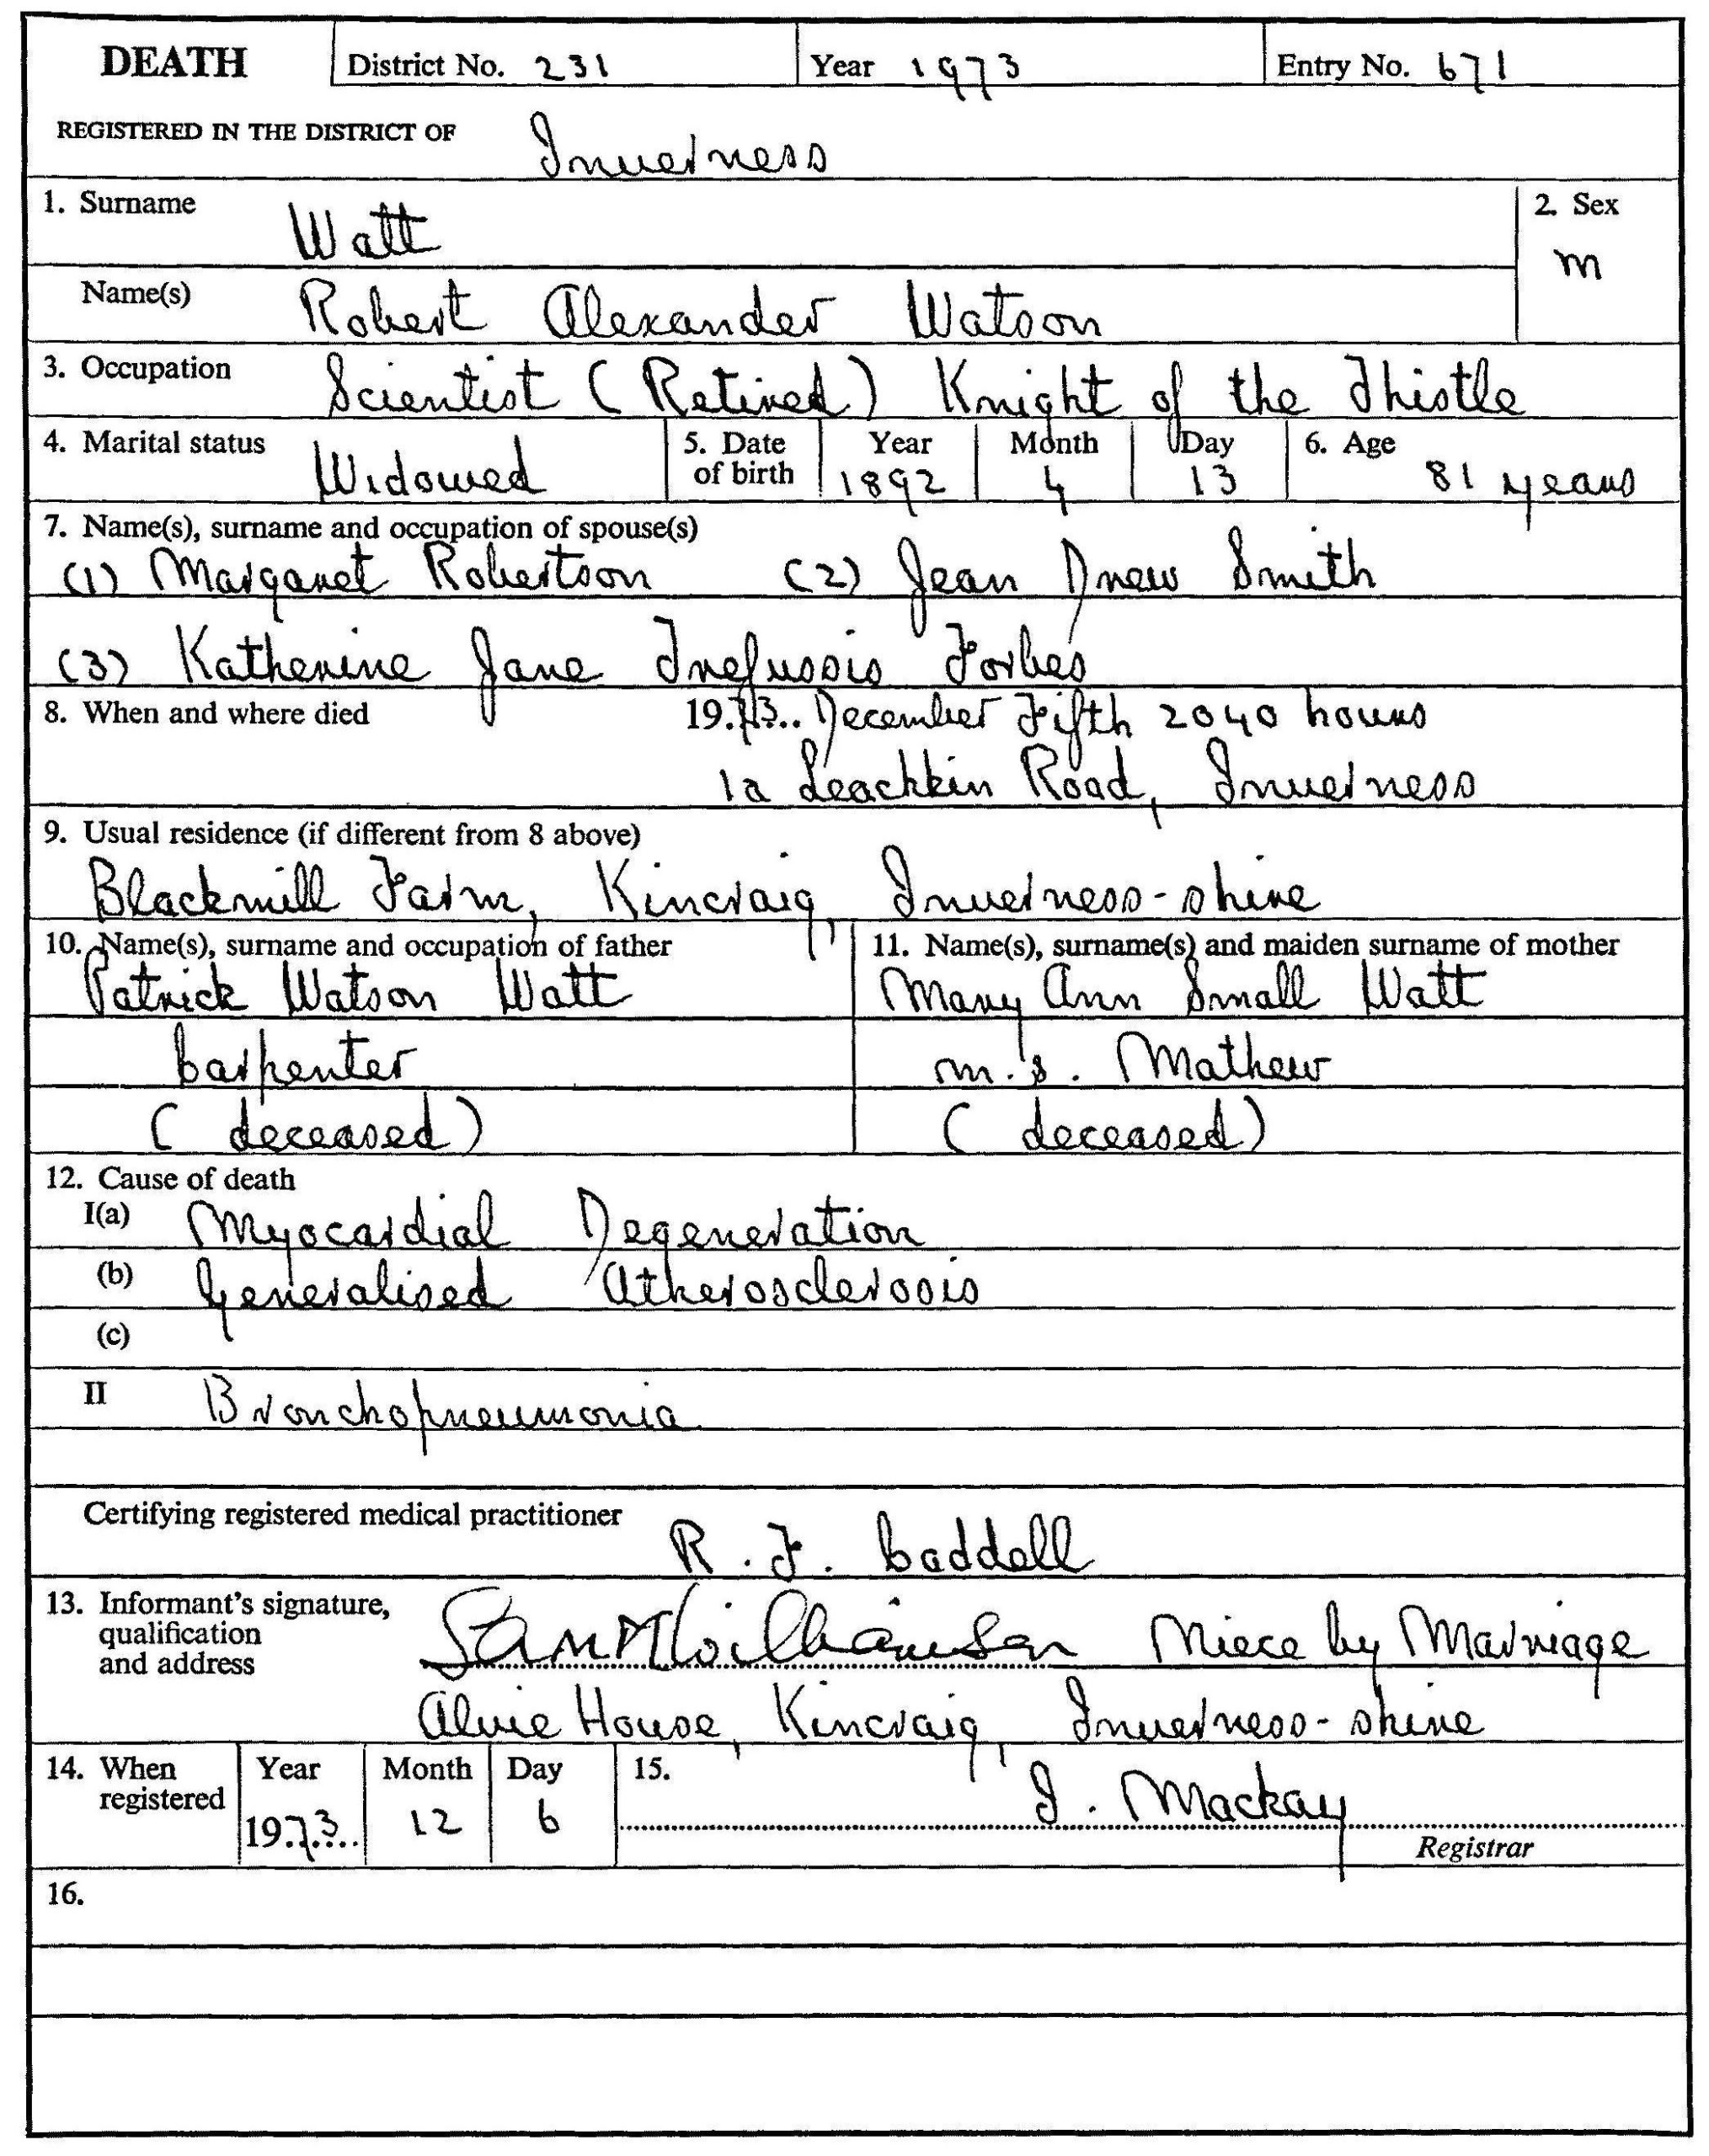 DEATH District No. 231 Year 1973 Entry No. 671
REGISTERED IN THE DISTRICT OF Inverness
1. Surname Watt 2. Sex
M
Name(s) Robert Alexander Watson
3. Occupation Scientist (Retired) Knight of the Thistle
4. Marital status Widowed 5. Date of birth Year 1892 Month 4 Day 13 6. Age 81 years
7. Name(s), surname and occupation of spouse(s)
(1) Margaret Robertson (2) Jean Drew Smith
(3) Katherine Jane Trefussis Forbes
8. When and where died 1973.. December Fifth 2040 hours
1a Leachkin Road, Inverness
9. Usual residence (if different from 8 above)
Blackmill Farm, Kincraig, Inverness-shire
10. Name(s), surname and occupation of father 11. Name(s), surname(s) and maiden surname of mother
Patrick Watson Watt Mary Ann Small Watt
Carpenter m.s. Mathew
(deceased) (deceased)
12. Cause of death
I(a) Myocardial Degeneration
(b) Generalised Atherosclerosis
(c)
II Bronchopneumonia
Certifying registered medical practitioner R. F. Caddell
13. Informant's signature, Williamson Niece by Marriage
qualification
and address Alvie House, Kincraig, Inverness-shire
14. When registered Year 1973.. Month 12 Day 6 15. I. Mackay
Registrar
16.